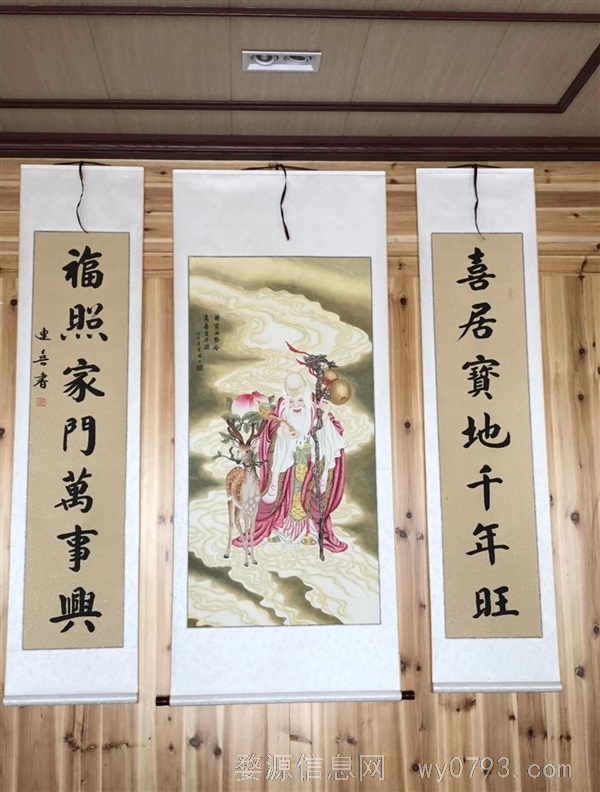 喜居寶地千年旺
福照家門萬事興
連喜書
婺源信息网 wy0793.com